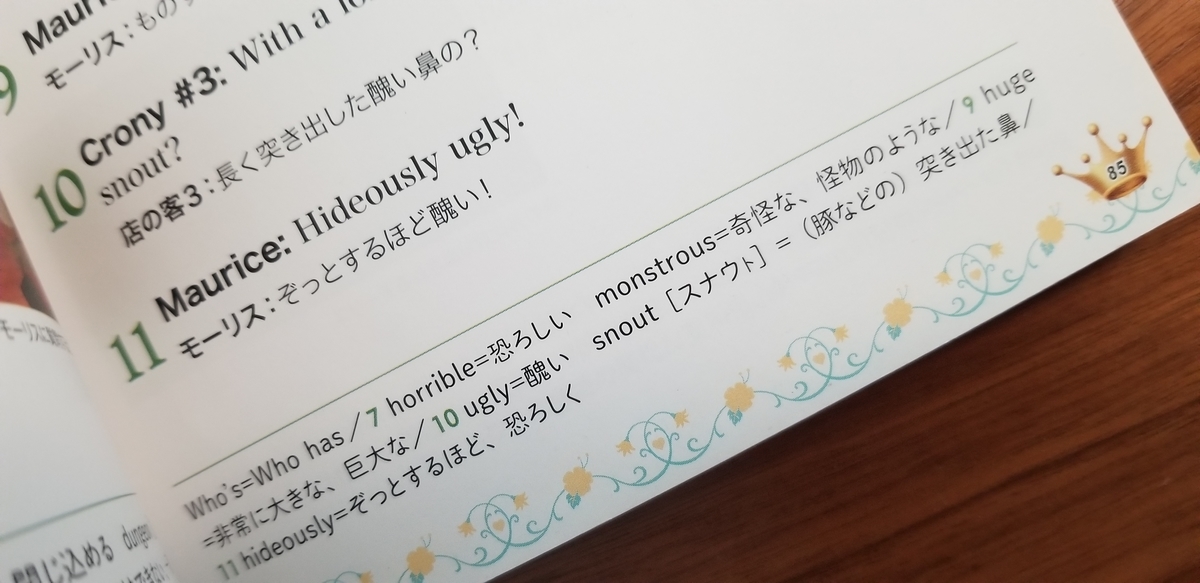 9
モーリス：もの
10
Crony #3: With a
snout?
店の客3：長く突き出した醜い鼻の？
11
Maurice: Hideously ugly!
モーリス：ぞっとするほど醜い！
Who's=Who has/7 horrible=恐ろしい　monstrous=奇怪な、怪物のような/9 huge
=非常に大きな、巨大な/10 ugly=醜い　snout［スナウト］=（豚などの）突き出た鼻/
11 hideously=ぞっとするほど、恐ろしく
85
モーリスに
閉じ込める